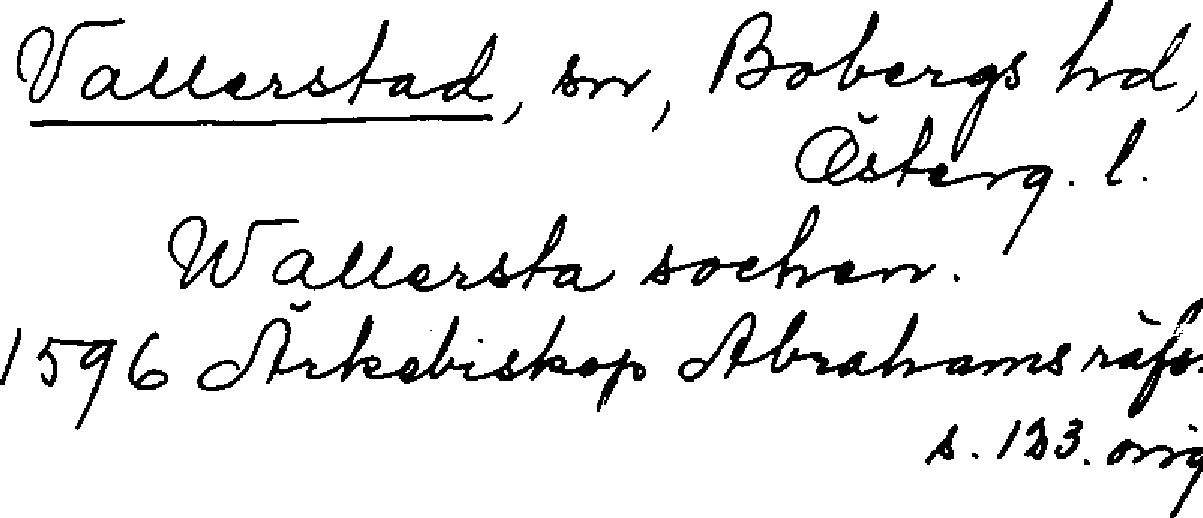 Vallerstad, sn, Bobergs hd,
Österg. l.
Wallersta sochen.
1596 Ärkebiskop Abrahams räfs
s. 133. orig